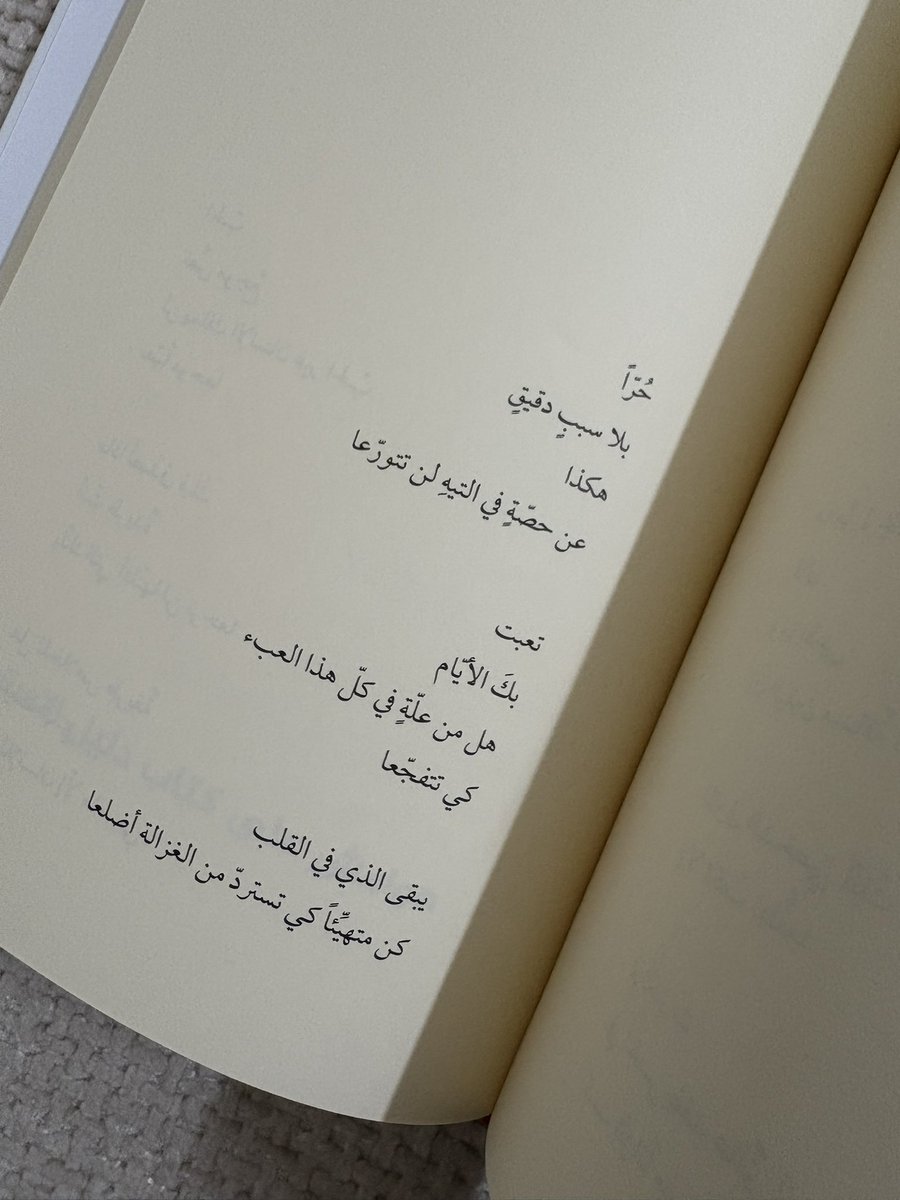 حُرّاً
بلا سببٍ دقيقٍ
هكذا
عن حصّةٍ في التيهِ لن تتورّعا
تعبت
بكَ الأيّام
هل من علّةٍ في كلّ هذا العبء
كي تتفجّعا
يبقى الذي في القلب
كن متهيِّئاً كي تستردّ من الغزالة أضلعا